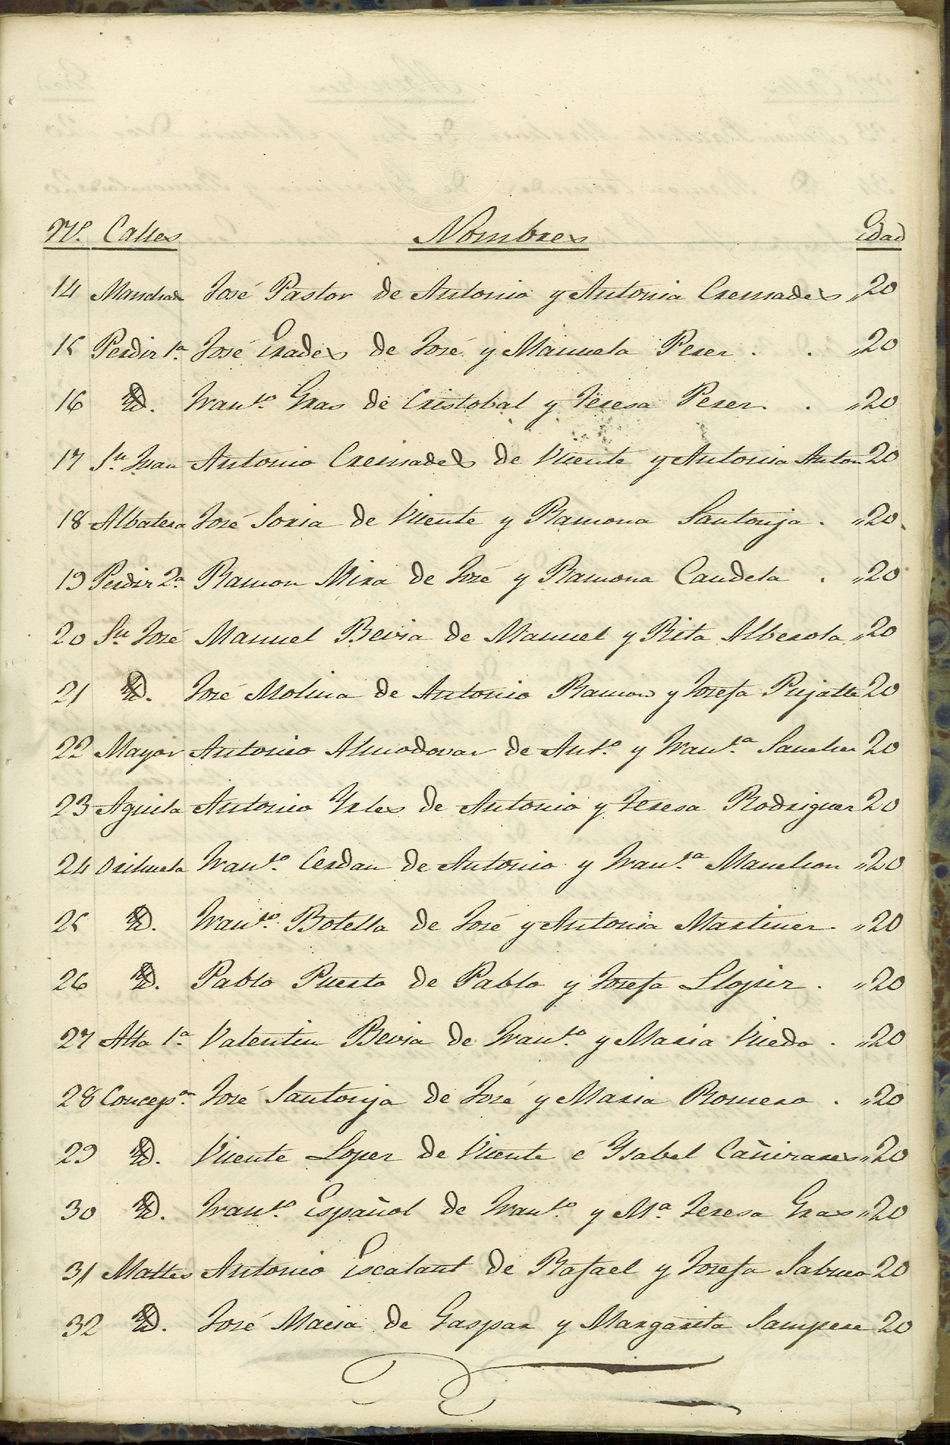 Nº. Calles Nombres Edad
14 José Pastor de Antonio y Antonia Cremades „20
15 Perdiz 1ª José Grades de José y Manuela Perez . . „20
16 Id. Franco. Gras de Cristobal y Teresa Perez . . „20
17 Sn Juan Antonio Cremades de Vicente y Antonia Anton 20
18 Albatera José Soria de Vicente y Ramona Santonja . „20
19 Perdiz 2ª Ramon Mira de José y Ramona Candela . „20
20 Sn José Manuel Bevia de Manuel y Rita Alberola „20
21 Id. José Molina de Antonio Ramon y Josefa Pujalte 20
22 Mayor Antonio Almodovar de Anto. y Franca. Sanchez 20
23 Aguila Antonio Irles de Antonio y Teresa Rodriguez 20
24 Orihuela Franco. Cerdan de Antonio y Franca. Manchon „20
25 Id. Franco. Botella de José y Antonia Martinez . „20
26 Id. Pablo Puerto de Pablo y Josefa Llopiz . „20
27 Alta 1ª Valentin Bevia de Franco. y Maria . „20
28 Concepn. José Santonja de José y Maria Romero . „20
29 Id. Vicente Lopez de Vicente é Ysabel Cañizares „20
30 Id. Franco. Español de Franco. y Mª Teresa Gras „20
31 Antonio Escalant de Rafael y Josefa 20
32 Id. José Macia de Gaspar y Margarita Sampere 20